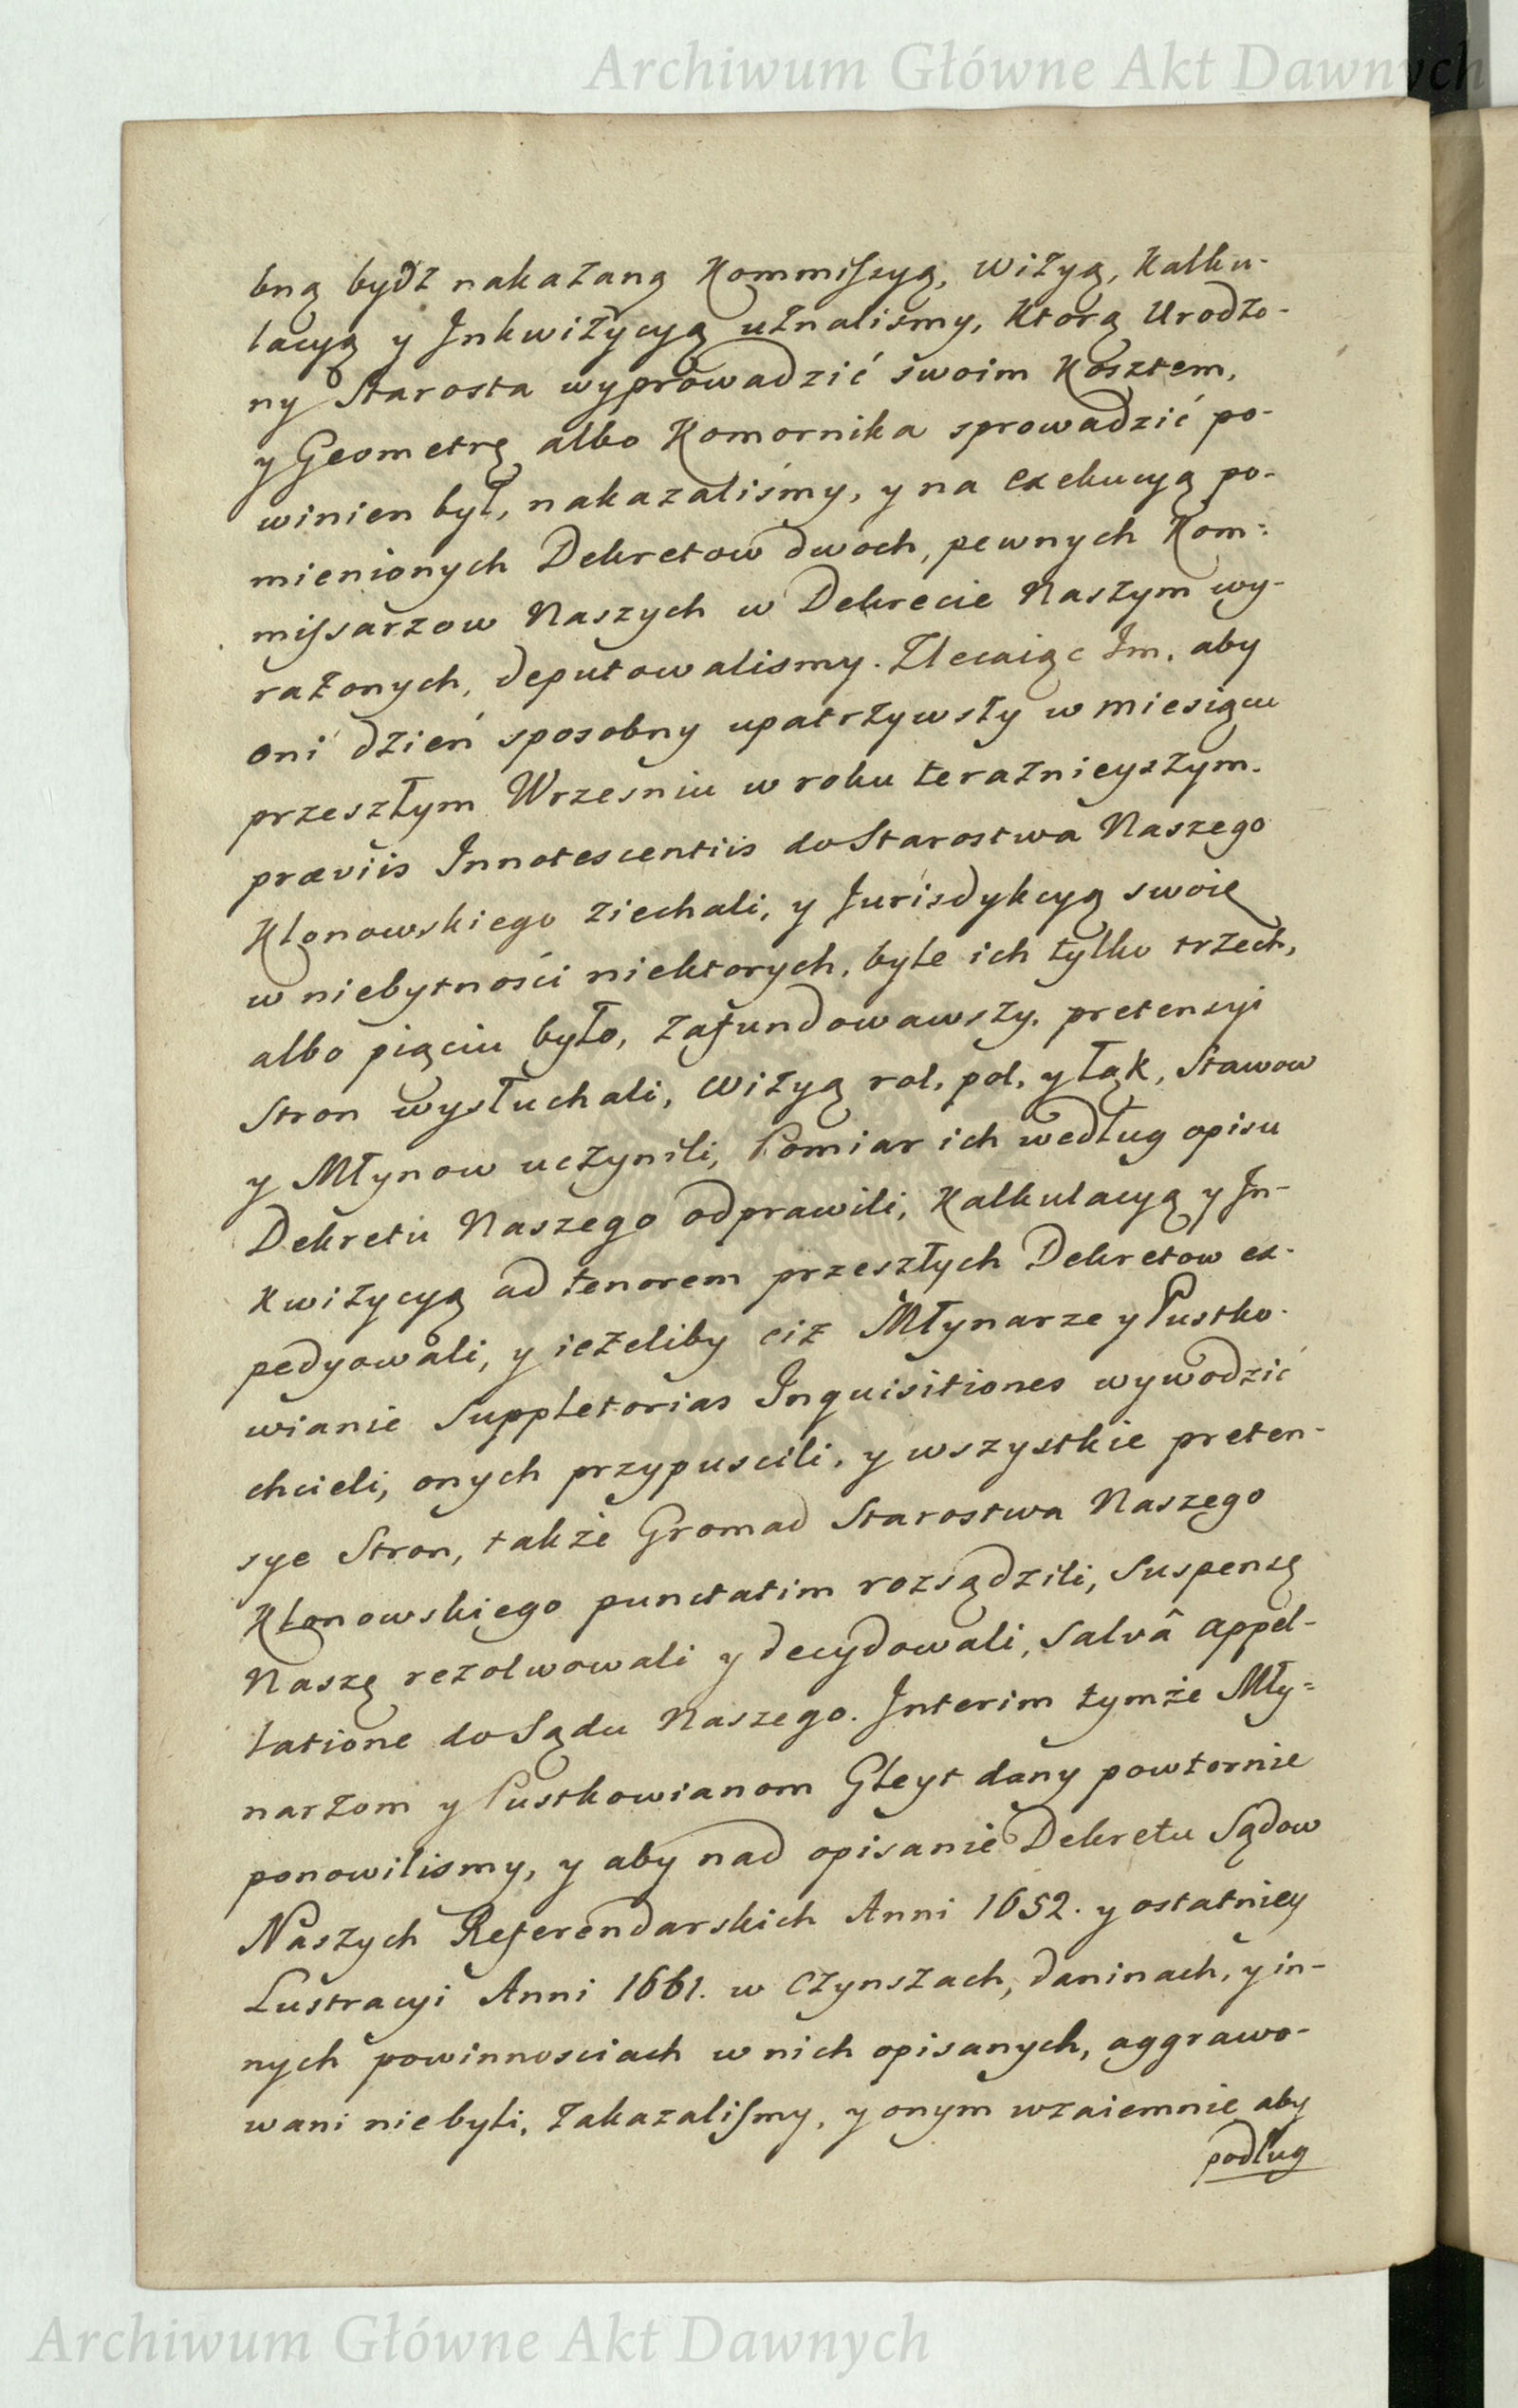 Archiwum Główne Akt Dawnych
bną bydz nakazaną Kommiſsyą, Wizyą, Kalku-
lacyą y Inkwizycyą uznalismy, Ktorą Urodzo-
ny Starosta wyprowadzić swoim Kosztem,
y Geometrę albo Komornika sprowadzić po-
winien był, nakazaliśmy, y na exekucyą po-
mienionych Dekretow dwoch, pewnych Kom=
miſsarzow Naszych w Dekrecie Naszym wy-
rażonych, deputowalismy. Zlecaiąc Im, aby
oni dzień sposobny upatrzywszy w miesiącu
przeszłym Wrzesniu w roku teraznieyszym.
præviis Innotescentiis do Starostwa Naszego
Klonowskiego ziechali, y Jurisdykcyą swoię
w niebytności niektorych, byle ich tylko trzech,
albo pięciu było, zafundowawszy, pretensyi
Stron wysłuchali, Wizyą rol, pol, y łąk, Stawow
y Młynow uczynili, Pomiar ich według opisu
Dekretu Naszego odprawili, Kalkulacyą y In-
kwizycyą ad tenorem przeszłych Dekretow ex-
pedyowali, y ieżeliby ciż Młynarze y Pustko-
wianie Suppletorias Inquisitiones wywodzić
chcieli, onych przypuscili, y wszystkie preten-
sye Stron, także Gromad Starostwa Naszego
Klonowskiego punctatim rozsądzili, Suspensę
Naszę rezolwowali y decydowali, Salvâ appel-
latione do Sądu Naszego. Interim tymże Mły=
narzom y Pustkowianom Gleyt dany powtornie
ponowilismy, y aby nad opisanie Dekretu Sądow
Naszych Referendarskich Anni 1652. y ostatniey
Lustracyi Anni 1661. w Czynszach, daninach, y in-
nych powinnosciach w nich opisanych, aggrawo-
wani niebyli, zakazaliſmy, y onym wzaiemnie aby
podług
Archiwum Główne Akt Dawnych